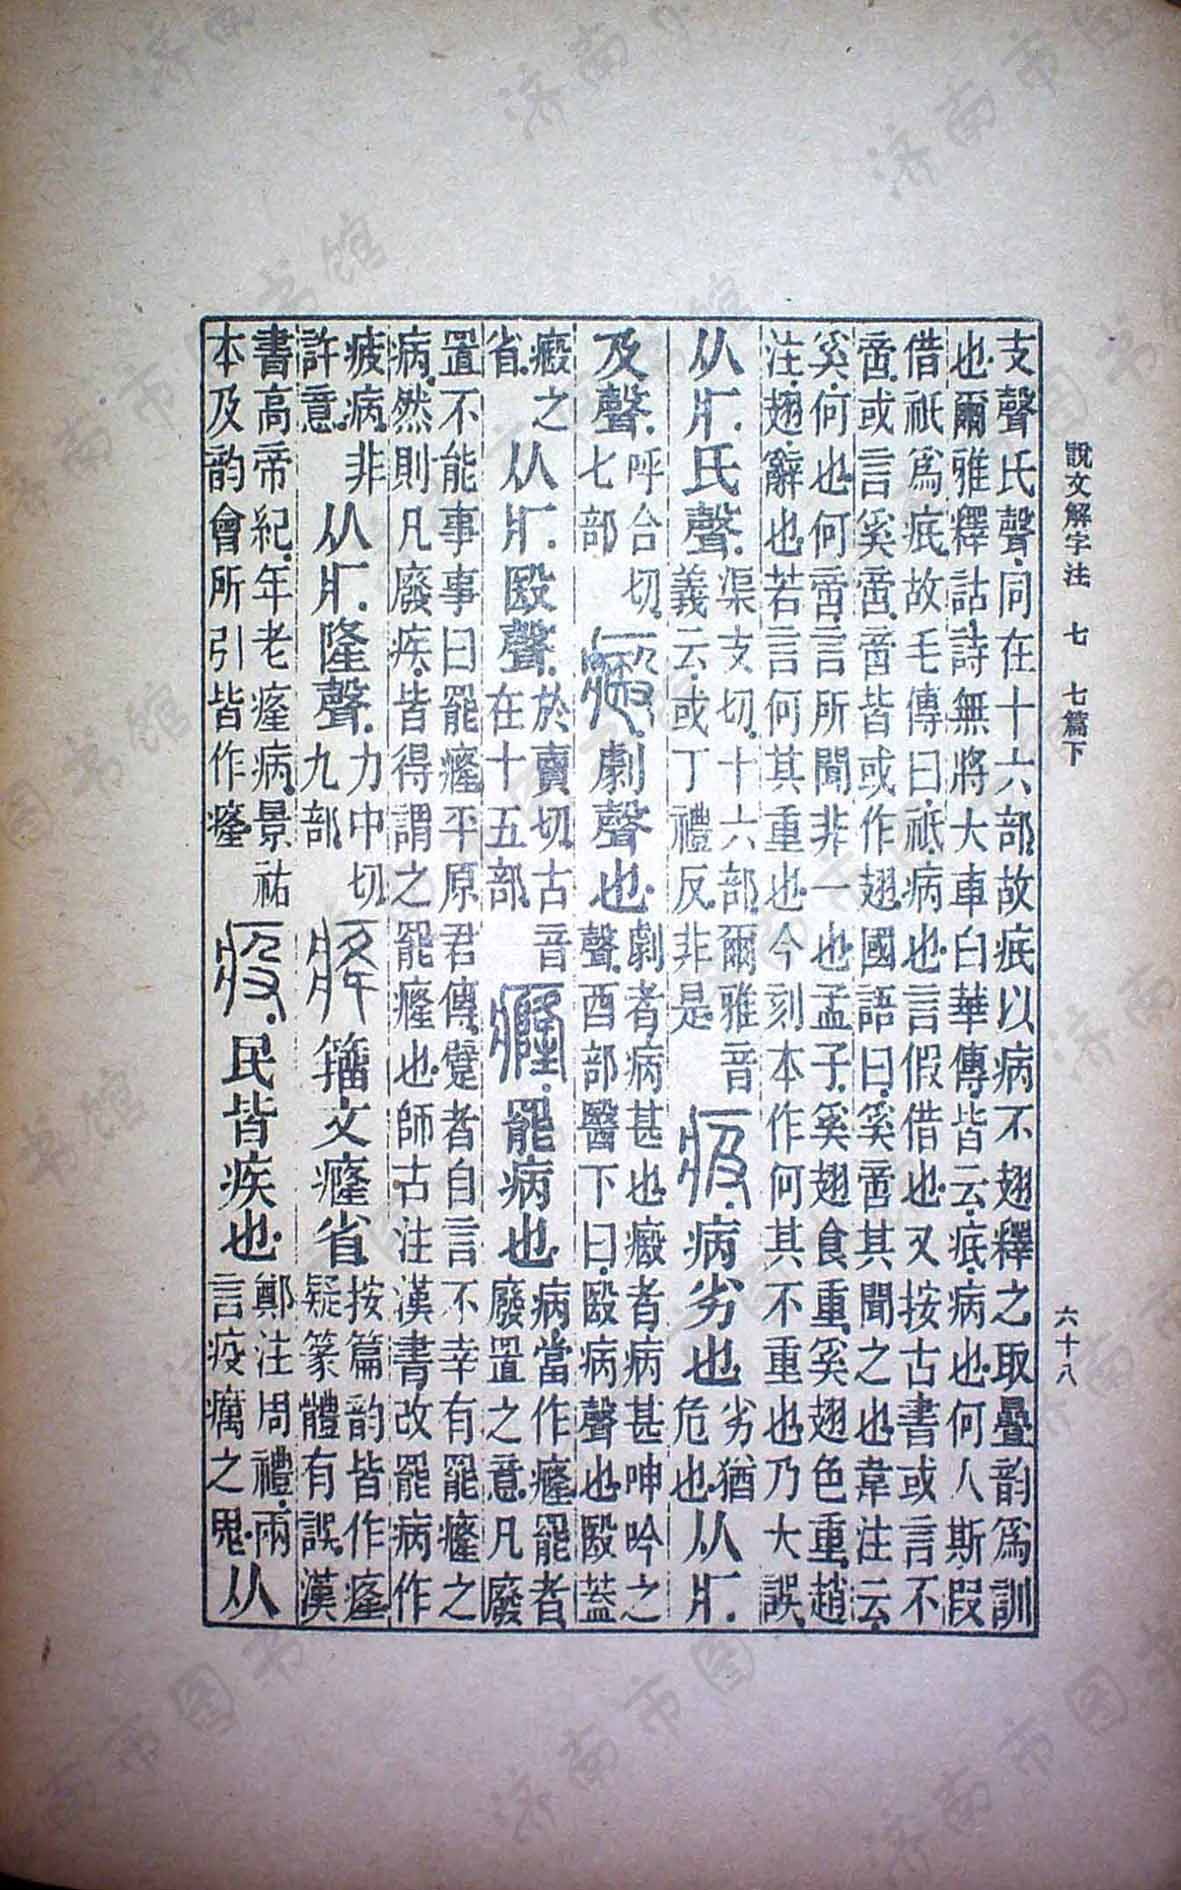 說文解字注 七 七篇下
六十八
支聲氏聲同在十六部故疷以病不翅釋之取曡韵爲訓
也爾雅釋詁詩無將大車白華傳皆云疷病也何人斯叚
借祇爲疷故毛傳曰祇病也言假借也又按古書或言不
啻或言奚啻啻皆或作翅國語曰奚啻其聞之也韋注云
奚何也何啻言所聞非一也孟子奚翅食重奚翅色重趙
注翅辭也若言何其重也今刻本作何其不重也乃大誤
从疒氏聲渠支切十六部爾雅音義云或丁禮反非是㾊病劣也劣猶危也从疒
及聲呼合切七部劇聲也劇者病甚也者病甚呻吟之聲酉部醫下曰殹病聲也殹葢
之省从疒殹聲於賣切古音在十五部癃罷病也病當作癃罷者廢置之意凡廢
置不能事事曰罷癃平原君傳躄者自言不幸有罷癃之
病然則凡廢疾皆得謂之罷癃也師古注漢書改罷病作
疲病非許意从疒隆聲力中切九部㾮籒文癃省按篇韵皆作㾮疑篆體有誤漢
書高帝紀年老㾮病景祐本及韵會所引皆作㾮疫民皆疾也鄭注周禮兩言疫癘之鬼从